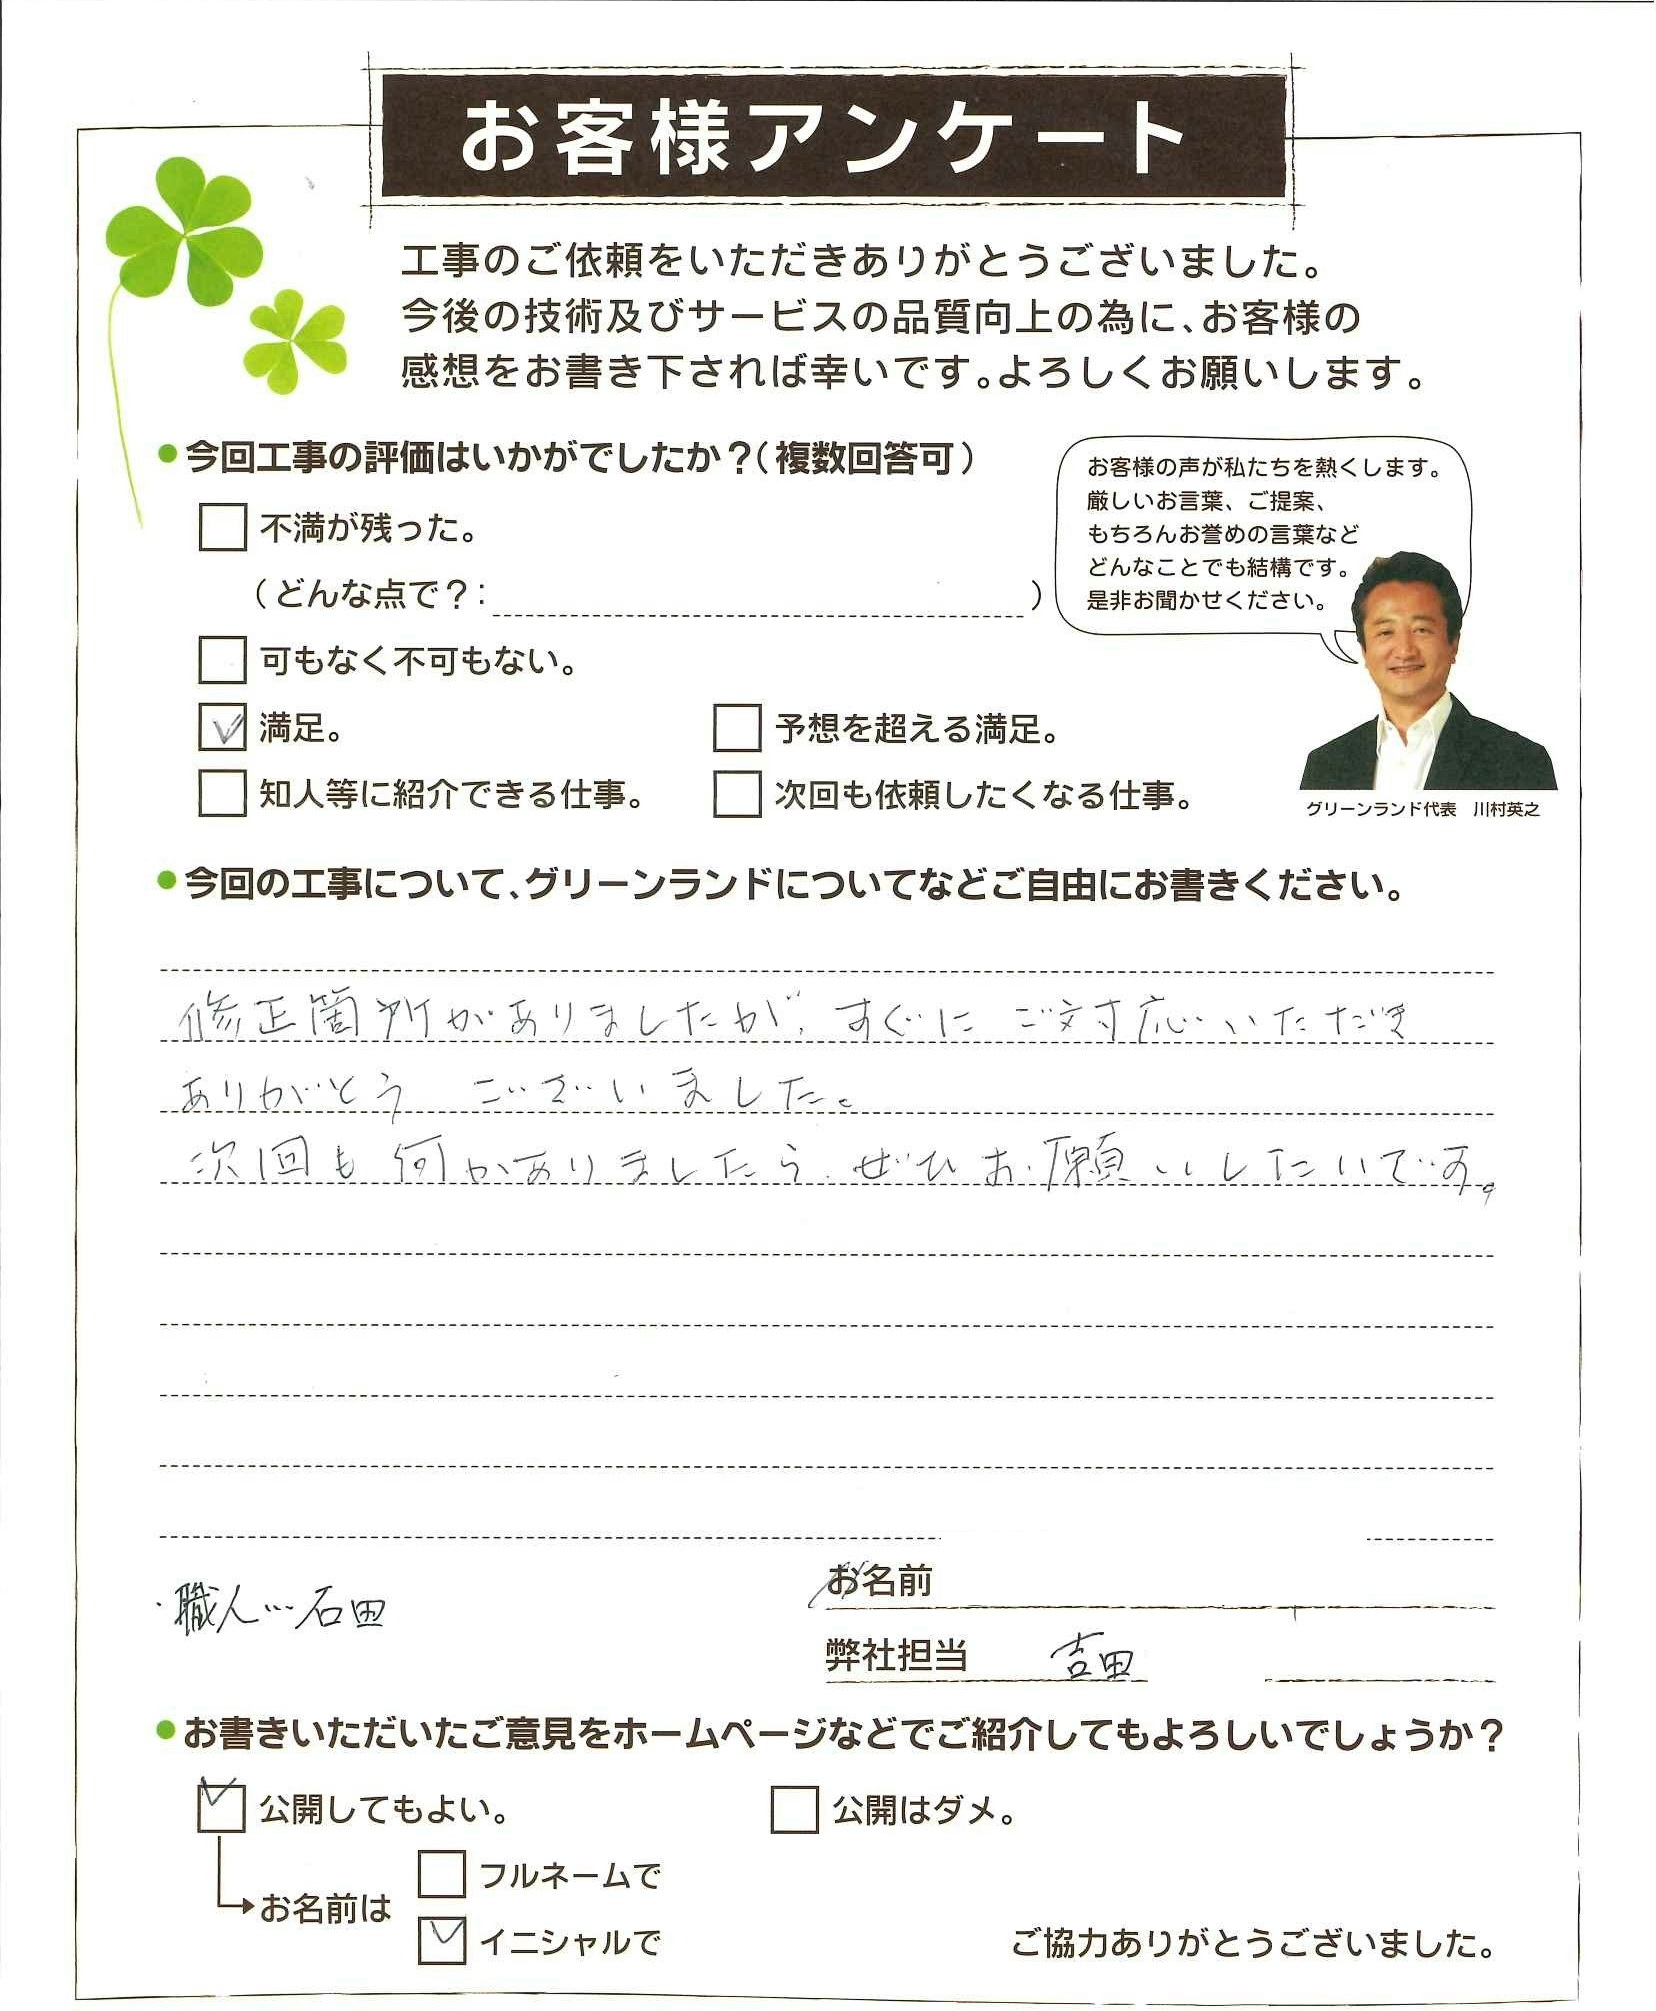 お客様アンケート
工事のご依頼をいただきありがとうございました。
今後の技術及びサービスの品質向上の為に、お客様の
感想をお書き下されば幸いです。よろしくお願いします。
●今回工事の評価はいかがでしたか？（複数回答可）
不満が残った。
（どんな点で？：　）
可もなく不可もない。
満足。
予想を超える満足。
知人等に紹介できる仕事。
次回も依頼したくなる仕事。
お客様の声が私たちを熱くします。
厳しいお言葉、ご提案、
もちろんお誉めの言葉など
どんなことでも結構です。
是非お聞かせください。
グリーンランド代表　川村英之
●今回の工事について、グリーンランドについてなどご自由にお書きください。
修正箇所がありましたが、すぐに ご対応いただき
ありがとう ございました。
次回も何かありましたら、ぜひお願いしたいです。
・職人…石田
お名前
弊社担当 吉田
●お書きいただいたご意見をホームページなどでご紹介してもよろしいでしょうか？
公開してもよい。
公開はダメ。
お名前は
フルネームで
イニシャルで
ご協力ありがとうございました。